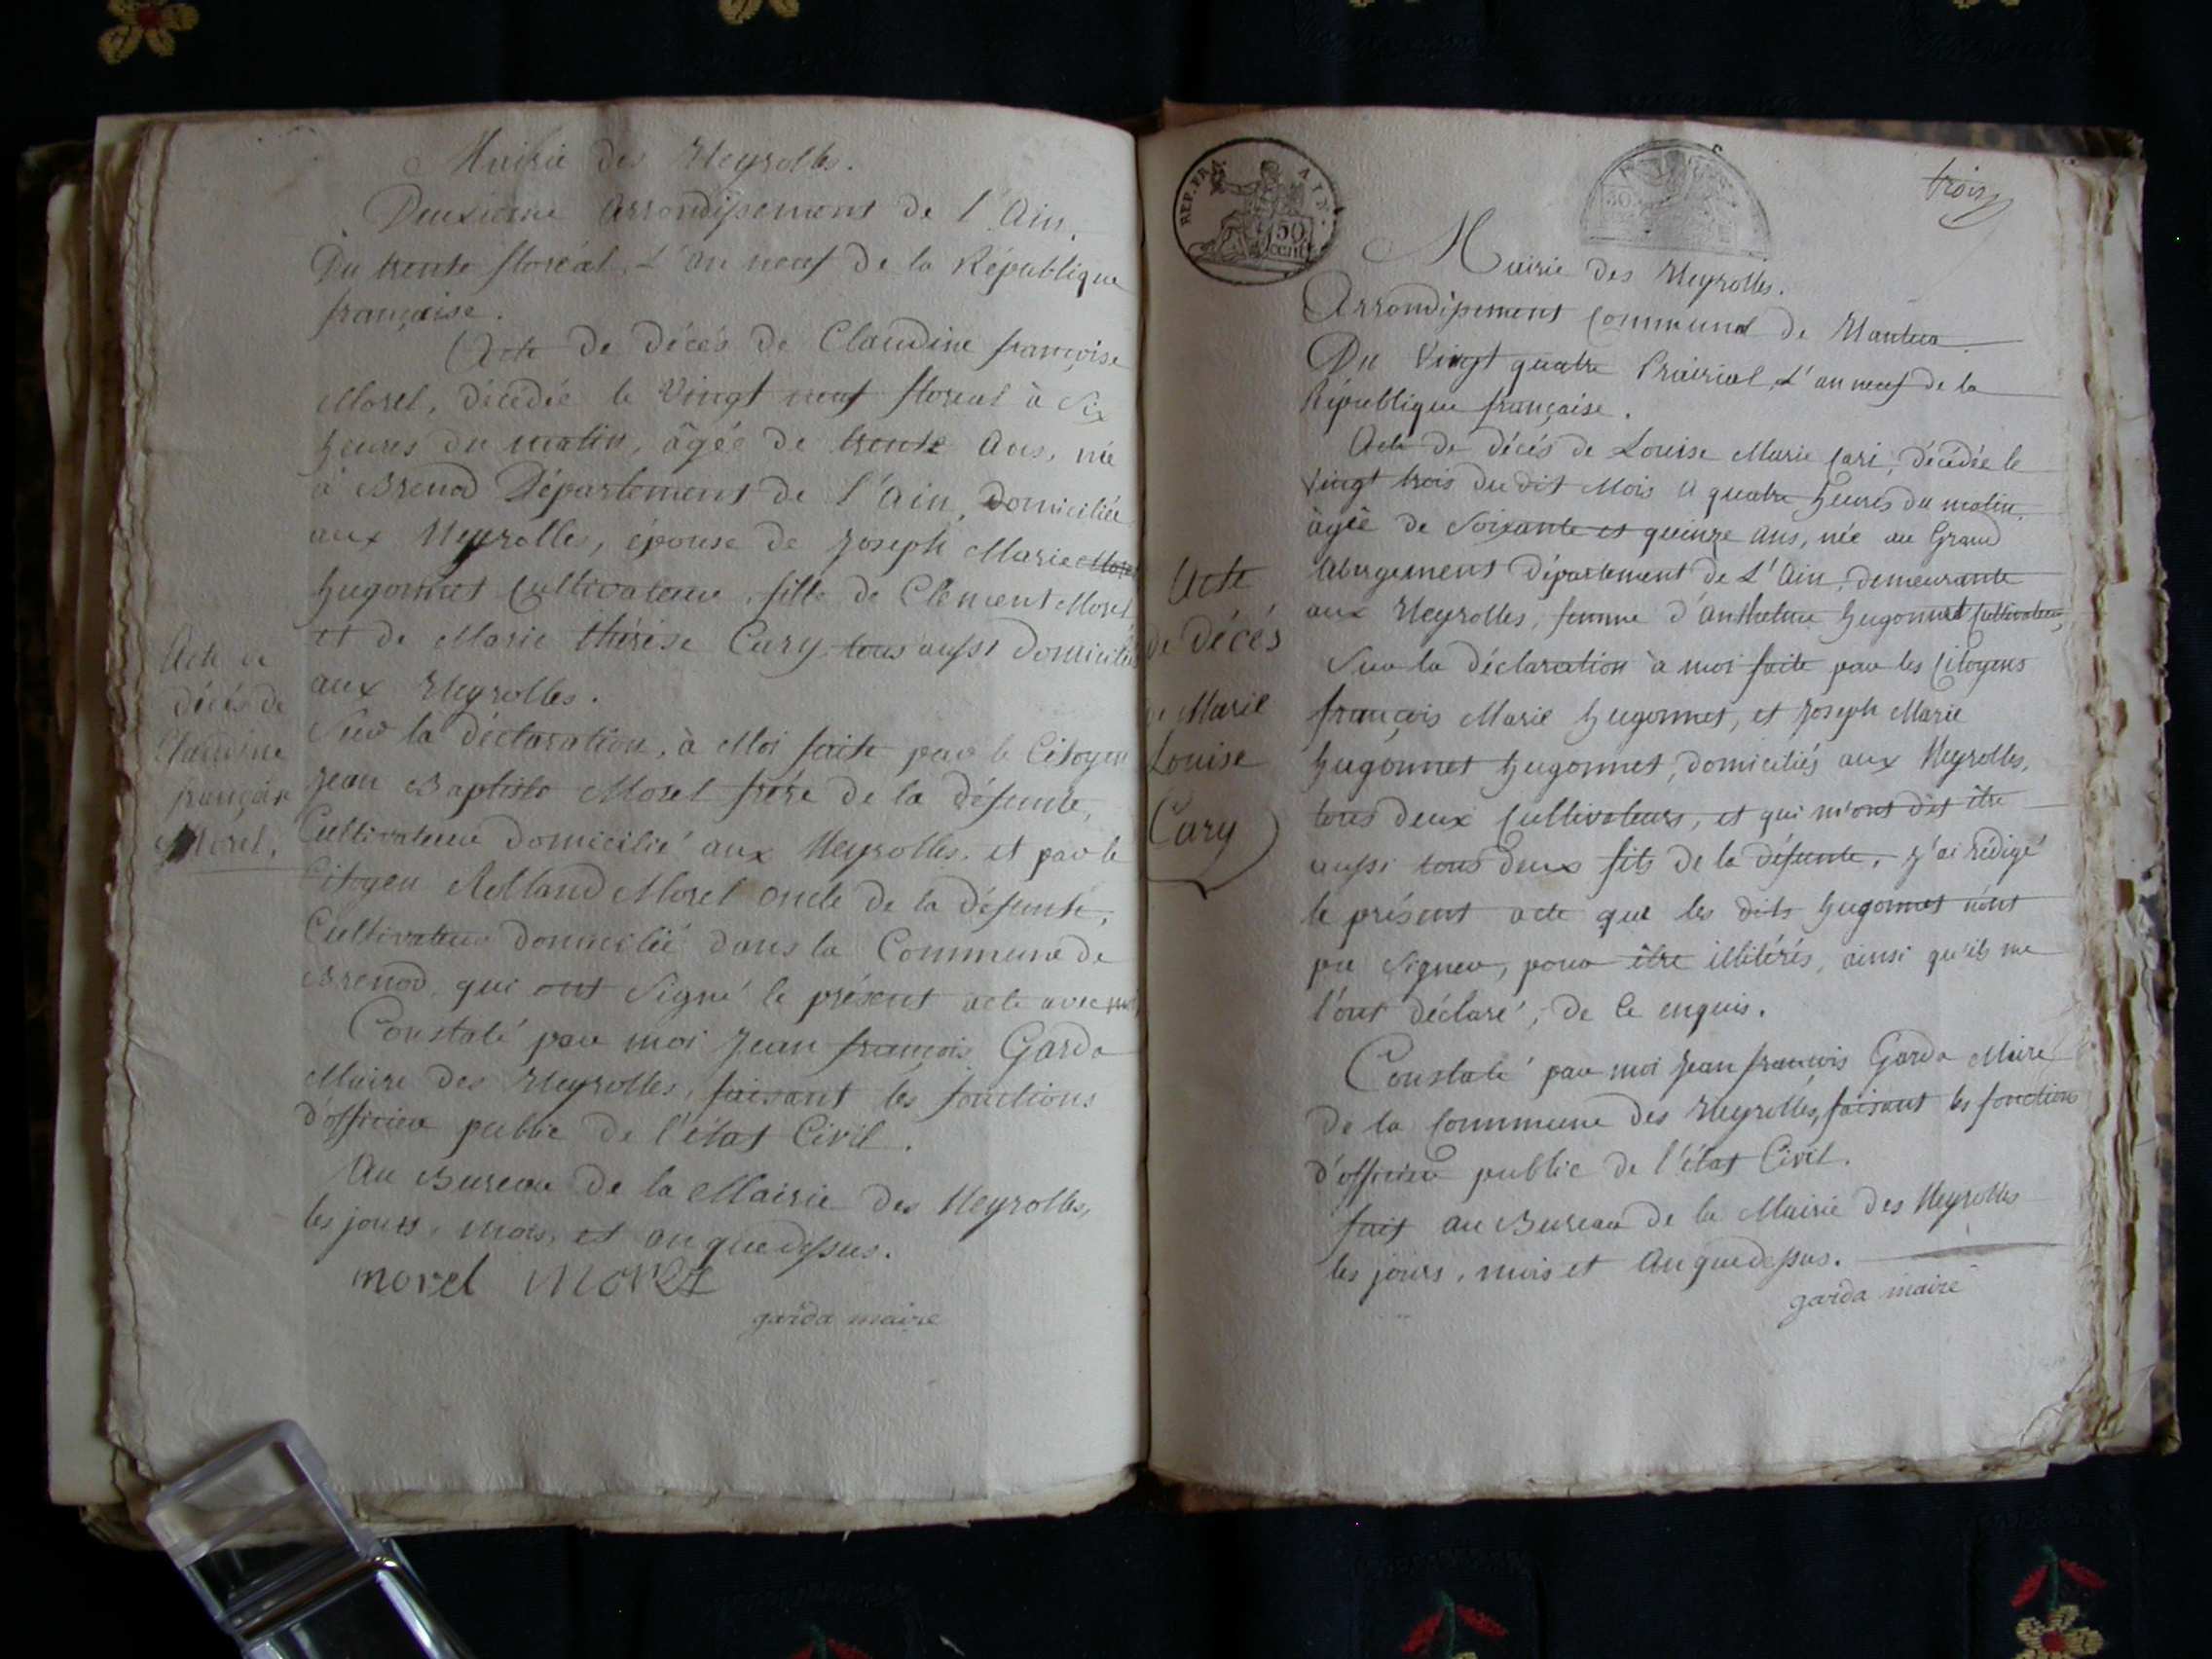 Mairie des Neyrolles.
Deuxieme arrondissement de l'Ain.
Du trente floréal, L'an neuf de la République
française.
Acte de décés de Claudine françoise
Morel, décédée le vingt neuf floreal à six
heures du matin, âgée de trente ans, née
à Brenod Département de l'Ain, domiciliée
aux Neyrolles, épouse de joseph Marie
hugonnet Cultivateur, fille de Clément Morel
et de Marie thérèse Cury, tous aussi domiciliés
aux Neyrolles.
Sur la déclaration, à Moi faite par le Citoyen
jean Baptiste Morel frére de la défunte,
Cultivateur domicilié aux Neyrolles, et par le
Citoyen Rolland Morel oncle de la défunte,
Cultivateur domicilié dans la Commune de
Brenod, qui ont signé le présent acte avec moi
Constaté par moi jean françois Garda
Maire des Neyrolles, faisant les fonctions
d'officier public de l'état Civil.
Au Bureau de la Mairie des Neyrolles,
les jours, mois, et an que dessus.
morel morel
garda maire
Acte de
décés de
Claudine
françoise
Morel.
REP. FRA. AIN.
50
cent.
50
trois
Mairie des Neyrolles.
Arrondissement Communal de Nantua
Du vingt quatre Prairial, L'an neuf de la
République française.
Acte de décés de Louise Marie Cari, décédée le
vingt trois du dit Mois à quatre heures du matin,
âgée de soixante et quinze ans, née au Grand
abergement département de L'Ain, demeurante
aux Neyrolles, femme d'anthelme hugonnet Cultivateur,
Sur la déclaration à moi faite par les Citoyens
françois Marie hugonnet, et joseph Marie
hugonnet hugonnet, domiciliés aux Neyrolles,
tous deux Cultivateurs, et qui m'ont dit être
aussi tous deux fils de la défunte, j'ai rédigé
le présent acte que les dits hugonnet n'ont
pu signer, pour être illitérés, ainsi qu'ils me
l'ont déclaré, de ce enquis.
Constaté par moi jean francois Garda Maire
de la Commune des Neyrolles, faisant les fonction
d'officier public de l'état Civil.
fait au Bureau de la Mairie des Neyrolles
les jours, mois et an que dessus.
garda maire
Acte
de décés
de Marie
Louise
Cury